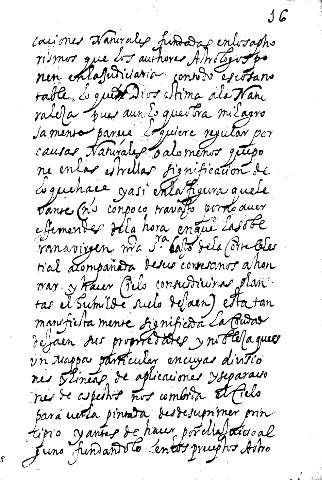 36
caciones Naturales fundadas enlos apho
rismos que los authores Astrologos po
nen enla Judiciaria con todo es cosa no
table lo que Dios estima ala Natu
raleza pues aun lo que obra milagro
samente parece lo quiere regular por
causas Naturales o alo menos que po
ne en las estrellas significacion de
lo que haçe y asi enla figura que le
vante (no con poco trabajo por no aver
efemerides de la hora en que la sobe
rana virgen nra Sra bajo dela Corte Celes
tial acompañada de sus cortesanos a hon
rrar y haçer Cielo con sus divinas plan
tas el humilde suelo de Jaen) esta tan
manifiestamente significada la Ciudad
de Jaen sus propriedades y nobleza que es
un Mappa particular en cuyas divisio
nes y lineas de aplicaciones y separacio
nes de aspectos nos combida el Cielo
para verla pintada desde su primer prin
cipio y antes de haçer
guno fundandolo en los preceptos Astro